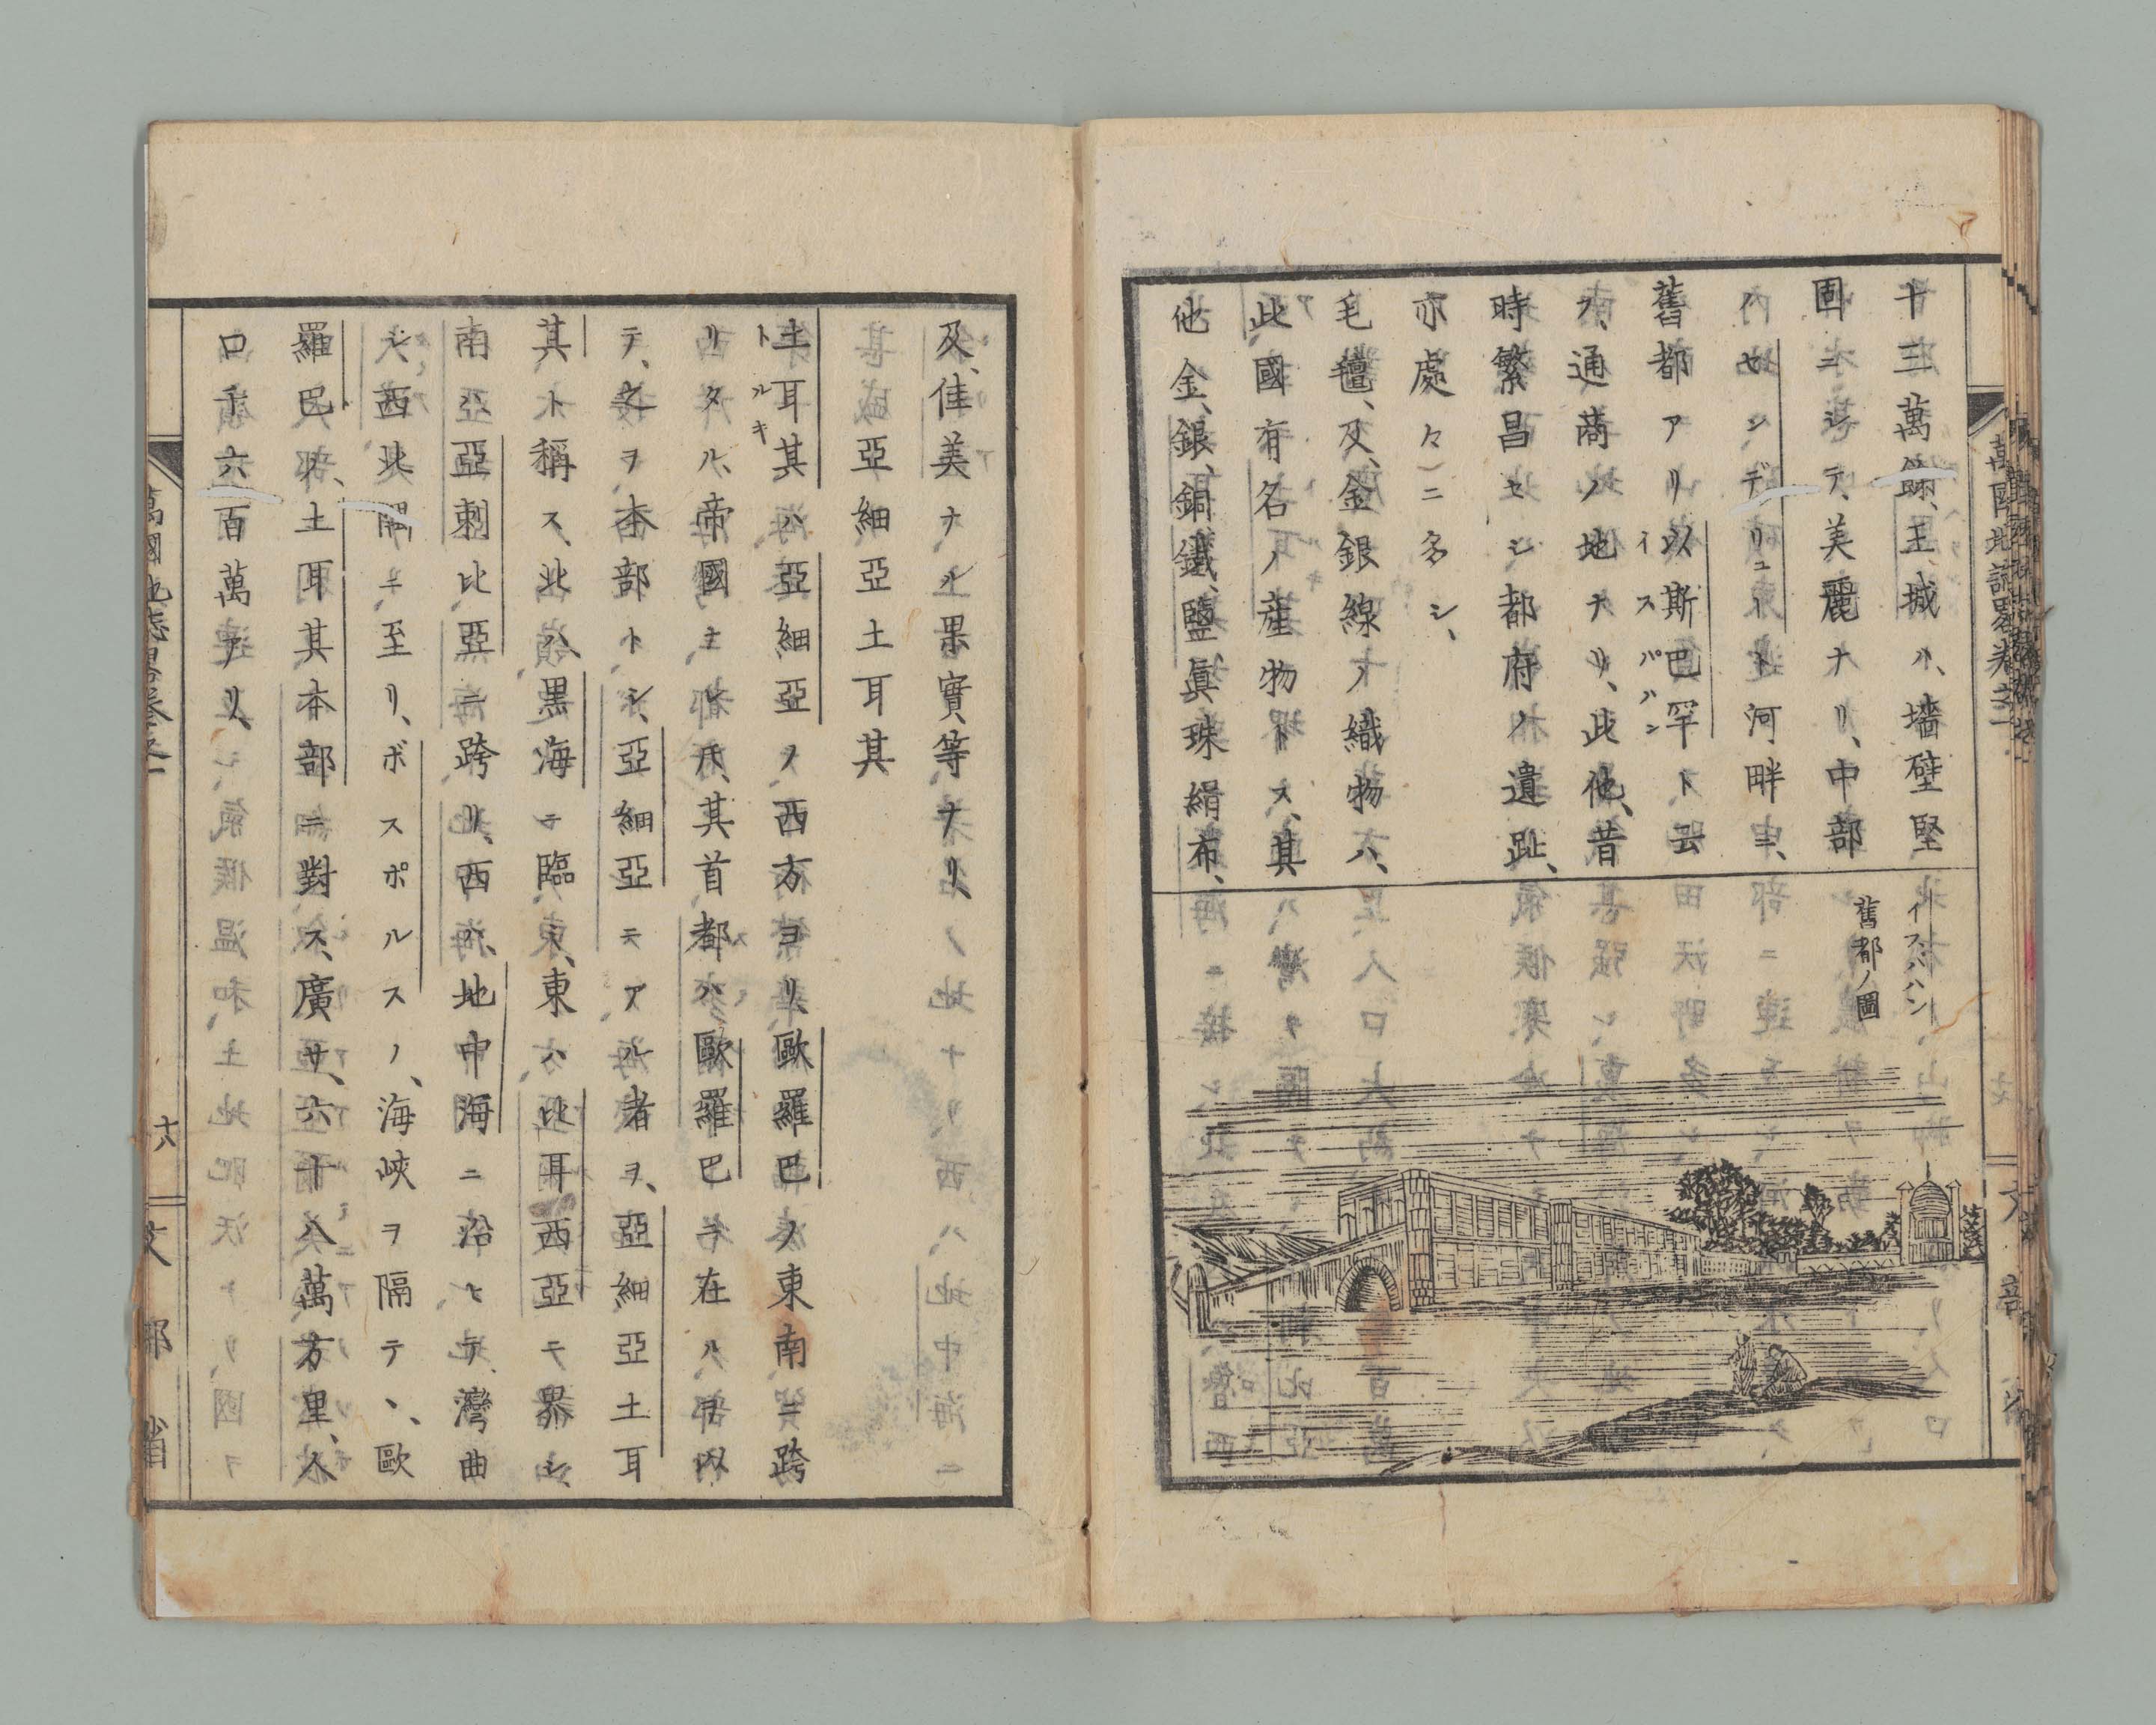 十三萬餘、王城ハ、墻壁堅
固ニシテ、美麗ナリ、中部
ノセンデリュートト河畔ニ、
舊都アリ以斯巴罕ト云
イスパハン
フ、通商ノ地ナリ、此他、昔
時繁昌セシ都府ノ遺趾、
亦處々ニ多シ、
毛氊、及、金銀線ノ織物ハ、
此國有名ノ産物トス、其
他金、銀、銅、鐵、鹽、眞珠絹布、
イスハハン
舊都ノ圖
萬國地誌畧巻之一
文部省
及、佳美ナル果實等ナリ、
亞細亞土耳其
土耳其ハ亞細亞ノ西方ヨリ、歐羅巴ノ東南ニ跨
トルキ
リタル、帝國ニシテ、其首都ハ、歐羅巴ニ在ルヲ以
テ、之ヲ本部トシ、亞細亞ニアル者ヲ、亞細亞土耳
其ト稱ス、北ハ黒海ニ臨ミ、東ハ比耳西亞ニ界シ、
南亞剌比亞ニ跨リ、西ハ、地中海ニ沿ヒテ、灣曲
シ、西北隅ニ至リ、ボスポルスノ、海峽ヲ隔テヽ、歐
羅巴、土耳其本部ニ對ス、廣サ、六十八萬方里、人
口千六百萬アリ、
萬國地誌畧巻之一
十六
文部省